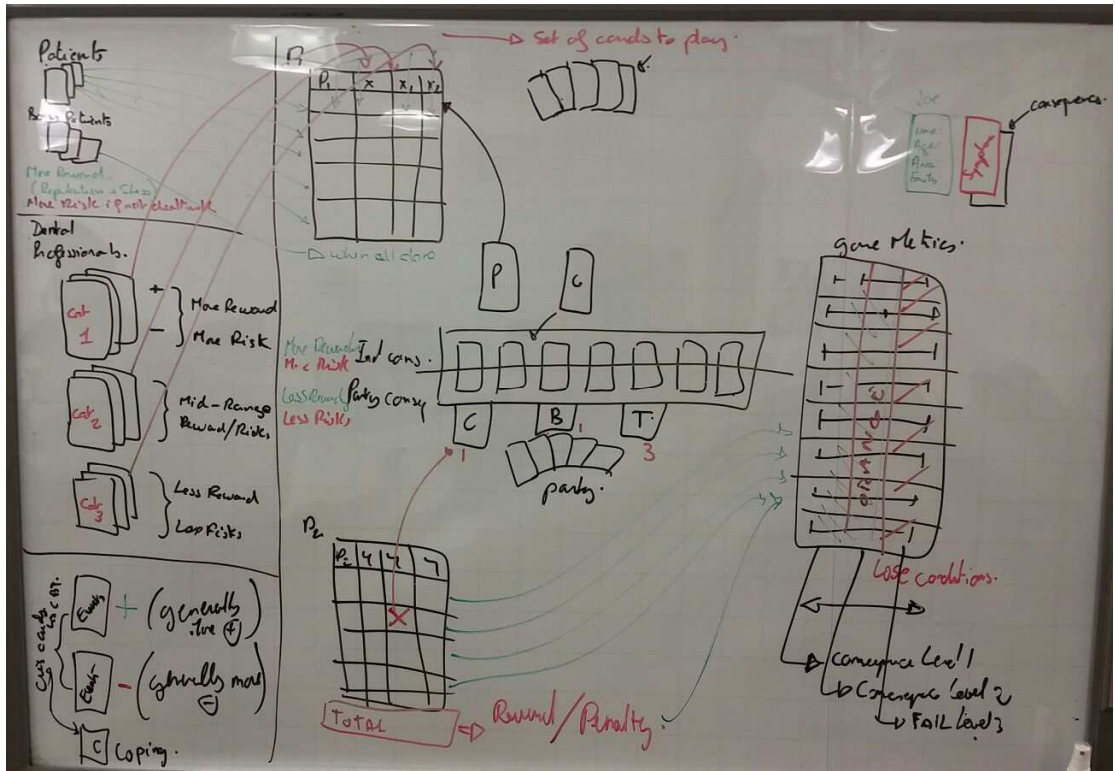 Patients
Patients
More Reward.
(Reputation + Stress)
More Risk if not dealt with
Dental
Professionals.
Cat
1
+
-
More Reward
More Risk
Cat
2
Mid-Range
Reward/Risks
Cat
3
Less Reward
Less Risks
Events
+ (generally
+
Event
- (generally more
-
C
Coping.
P1
x
x1
x2
Set of cards to play.
when all done
P
C
More Reward
More Risk
Ind cons.
Less Reward
Less Risks
Party consq
C
B
T.
1
1
3
party.
P2
P2
4
4
4
X
TOTAL
Reward/Penalty.
Joe
Name-
Age-
Area
consquences.
game Metrics.
ORANGE
Lose conditions.
Consequence Level 1
Consequence Level 2
FAIL Level 3